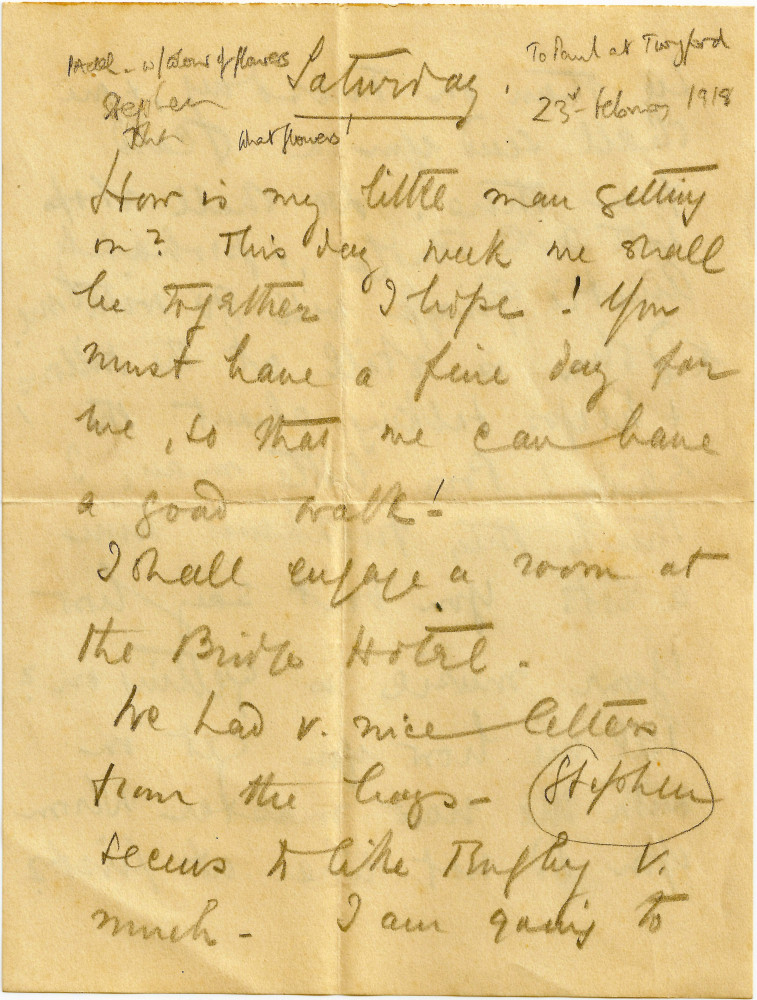 w/ colour of flowers
Saturday.
To Paul at Twyford
Stephen
23rd February 1918
What flowers!
How is my little man getting
on? This day week we shall
be together I hope! You
must have a fine day for
me, so that we can have
a good walk!
I shall engage a room at
the Bridge Hotel.
We had v. nice letters
from the boys - Stephen
seems to like Rugby v.
much - I am going to